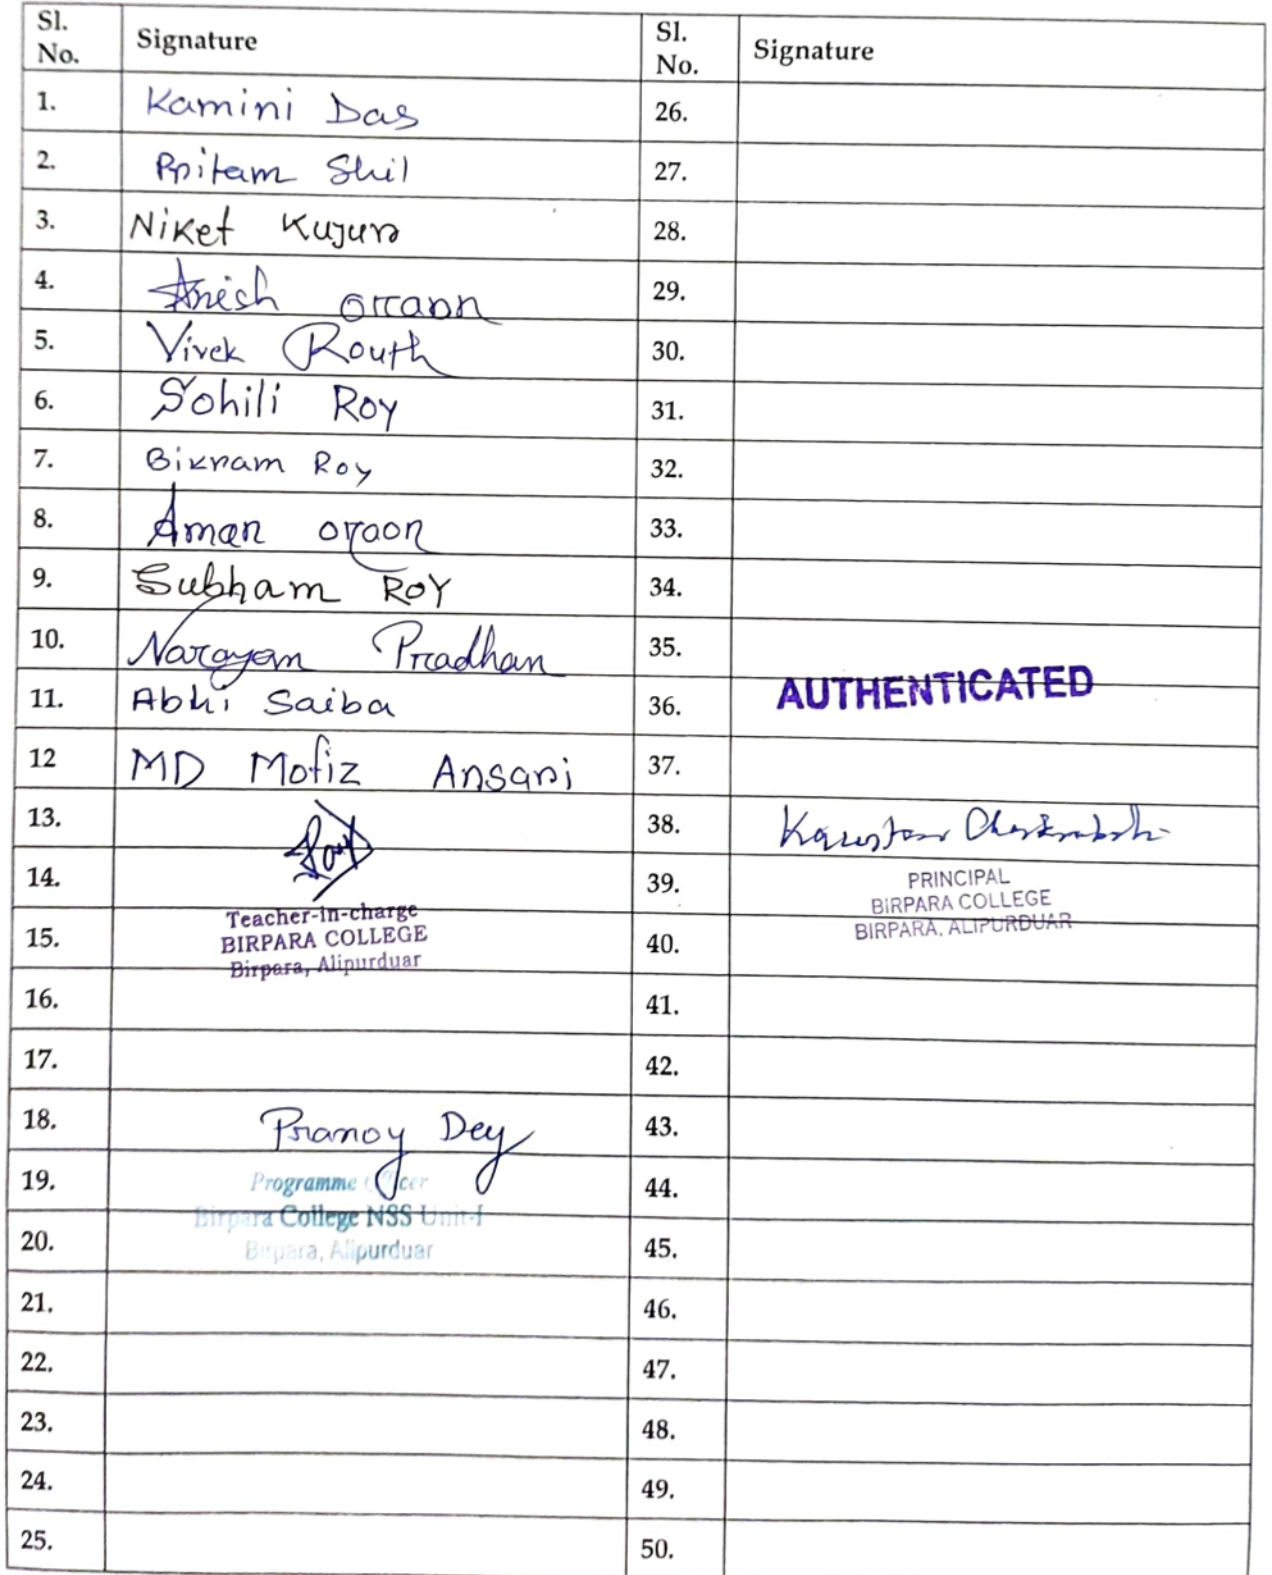 Sl. No. Signature Sl. No. Signature
1. Kamini Das 26.
2. Ppitam Shil 27.
3. Niket Kujur 28.
4. Anish oraon 29.
5. Vivek Routh 30.
6. Sohili Roy 31.
7. Bikram Roy 32.
8. Aman oraon 33.
9. Subham ROY 34.
10. Narayan Pradhan 35.
11. Abhi Saiba 36. AUTHENTICATED
12 MD Mofiz Ansari 37.
13. 38.
14. 39. PRINCIPAL
BIRPARA COLLEGE
BIRPARA, ALIPURDUAR
Teacher-in-charge
15. BIRPARA COLLEGE 40.
Birpara, Alipurduar
16. 41.
17. 42.
18. Pranoy Dey 43.
19. Programme Officer 44.
Birpara College NSS Unit-I
20. Birpara, Alipurduar 45.
21. 46.
22. 47.
23. 48.
24. 49.
25. 50.